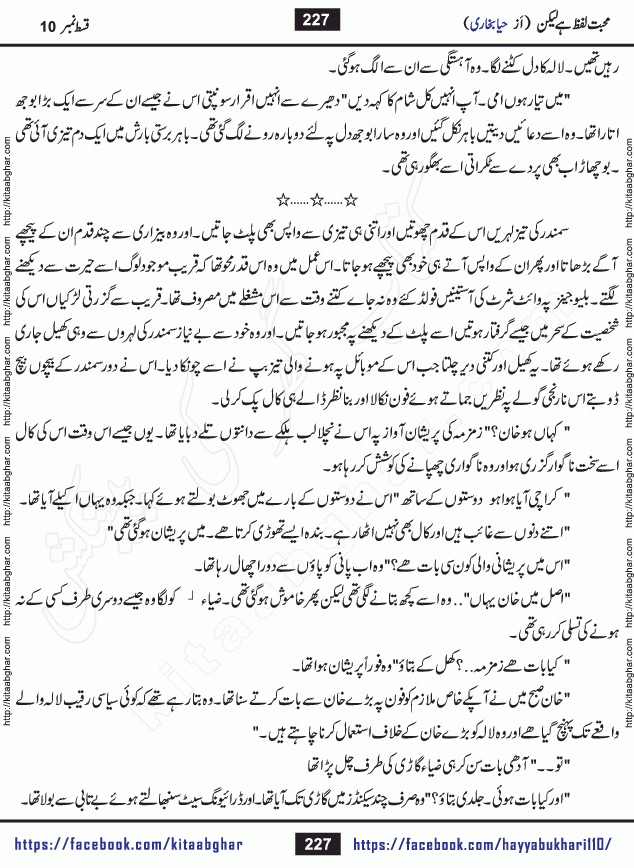 محبت لفظ ہے لیکن (از حیا بخاری)
227
قسط نمبر 10
رہیں تھیں۔ لالہ کا دل کٹنے لگا۔ وہ آہستگی سے ان سے الگ ہو گئی۔
"میں تیار ہوں امی۔ آپ انہیں کل شام کا کہہ دیں" دھیرے سے انہیں اقرار سونپتی اس نے جیسے ان کے سر سے ایک بڑا بوجھ
اتارا تھا۔ وہ اسے دعائیں دیتیں باہر نکل گئیں اور وہ سارا بوجھ دل پہ لئے دوبارہ رونے لگ گئی تھی۔ باہر برستی بارش میں ایک دم تیزی آئی تھی
۔ بوچھاڑ اب بھی پردے سے ٹکراتی اسے بھگو رہی تھی۔
☆......☆......☆
سمندر کی تیز لہریں اس کے قدم چھوتیں اور اتنی ہی تیزی سے واپس بھی پلٹ جاتیں۔ اور وہ بیزاری سے چند قدم ان کے پیچھے
آگے بڑھاتا اور پھر ان کے واپس آتے ہی خود بھی پیچھے ہو جاتا۔ اس عمل میں وہ اس قدر محو تھا کہ قریب موجود لوگ اسے حیرت سے دیکھنے
لگتے۔ بلیو جینز پہ وائٹ شرٹ کی آستینیں فولڈ کئے وہ نہ جانے کتنے وقت سے اس مشغلے میں مصروف تھا۔ قریب سے گزرتی لڑکیاں اس کی
شخصیت کے سحر میں جیسے گرفتار ہوتیں اسے پلٹ کے دیکھنے پہ مجبور ہو جاتیں۔ اور وہ خود سے بے نیاز سمندر کی لہروں سے وہی کھیل جاری
رکھے ہوئے تھا۔ یہ کھیل اور کتنی دیر چلتا جب اس کے موبائل پہ ہونے والی تیز بپ نے اسے چونکا دیا۔ اس نے دور سمندر کے بیچوں بیچ
ڈوبتے اس نارنجی گولے پہ نظریں جماتے ہوئے فون نکالا اور بنا نظر ڈالے ہی کال پک کر لی۔
"کہاں ہو خان؟" زمزمہ کی پریشان آواز پہ اس نے نچلا لب ہلکے سے دانتوں تلے دبایا تھا۔ یوں جیسے اس وقت اس کی کال
اسے سخت ناگوار گزری ہو اور وہ ناگواری چھپانے کی کوشش کر رہا ہو۔
"کراچی آیا ہوا ہو دوستوں کے ساتھ" اس نے دوستوں کے بارے میں جھوٹ بولتے ہوئے کہا۔ جبکہ وہ یہاں اکیلے آیا تھا۔
"اتنے دنوں سے غائب ہیں اور کال بھی نہیں اٹھا رہے۔ بندہ ایسے تھوڑی کرتا ھے۔ میں پریشان ہو گئی تھی"
"اس میں پریشانی والی کون سی بات ھے؟" وہ اب پانی کو پاؤں سے دور اچھال رہا تھا۔
"اصل میں خان یہاں".. وہ اسے کچھ بتانے لگی تھی لیکن پھر خاموش ہو گئی تھی۔ ضیاء ┘ کو لگا وہ جیسے دوسری طرف کسی کے نہ
ہونے کی تسلی کر رہی تھی۔
"کیا بات ھے زمزمہ..؟ کھل کے بتاؤ" وہ فوراً پریشان ہوا تھا۔
"خان صبح میں نے آپکے خاص ملازم کو فون پہ بڑے خان سے بات کرتے سنا تھا۔ وہ بتا رہے تھے کہ کوئی سیاسی رقیب لالہ والے
واقعے تک پہنچ گیا ھے اور وہ لالہ کو بڑے خان کے خلاف استعمال کرنا چاہتے ہیں۔"
"تو۔۔" آدھی بات سن کر ہی ضیاء گاڑی کی طرف چل پڑا تھا
"اور کیا بات ہوئی۔ جلدی بتاؤ؟" وہ صرف چند سیکنڈز میں گاڑی تک آیا تھا۔ اور ڈرائیونگ سیٹ سنبھالتے ہوئے بے تابی سے بولا تھا۔
https://facebook.com/kitaabghar
227
https://facebook.com/hayyabukhari110/
http://kitaabghar.com http://kitaabghar.com http://kitaabghar.com http://kitaabghar.com http://kitaabghar.com http://kitaabghar.com
http://kitaabghar.com http://kitaabghar.com http://kitaabghar.com http://kitaabghar.com http://kitaabghar.com http://kitaabghar.com
kitaabghar.com